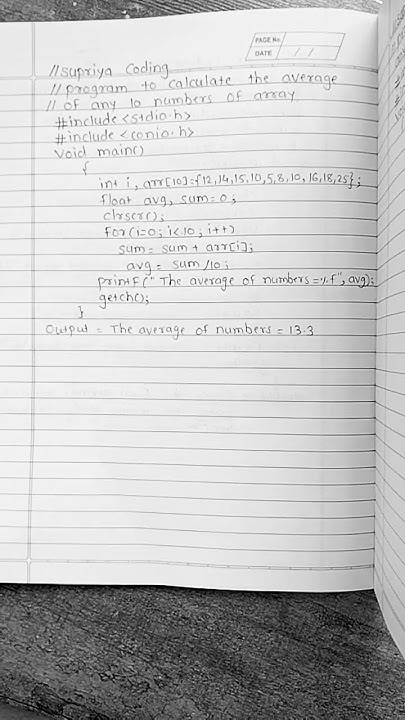 PAGE No.
DATE / /
//Supriya Coding
// program to calculate the average
// of any 10 numbers of array
#include <stdio.h>
#include <conio.h>
void main()
{
int i, arr[10]={12,14,15,10,5,8,10,16,18,25};
float avg, sum=0;
clrscr();
for(i=0; i<10; i++)
sum = sum + arr[i];
avg = sum/10;
printf(" The average of numbers =%f", avg);
getch();
}
Output = The average of numbers = 13.3